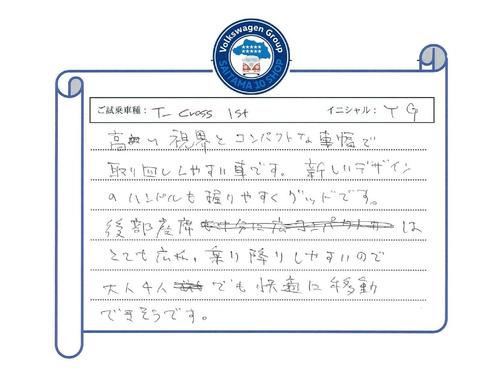 Volkswagen Group
SAITAMA 10 SHOP
ご試乗車種： T-Cross 1st イニシャル： Y G
高い視界とコンパクトな車幅で
取り回ししやすい車です。新しいデザイン
のハンドルも握りやすくグッドです。
後部座席は
とても広れ、乗り降りしやすいので
大人4人でも快適に移動
できそうです。